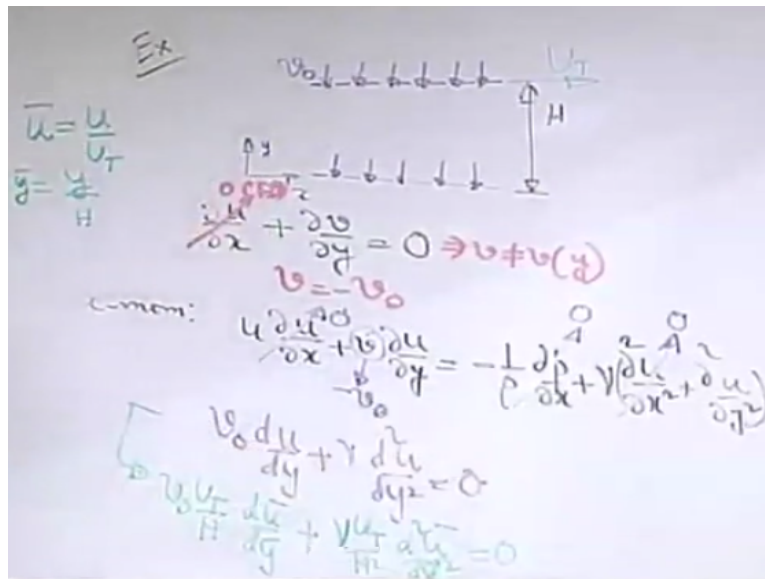 Ex
v₀ U_T
H
ū = u/U_T
ȳ = y/H
y
0 (FD)
∂u/∂x + ∂v/∂y = 0 ⇒ v ≠ v(y)
v = -v₀
-mom: u ∂u/∂x + v ∂u/∂y = -1/ρ ∂p/∂x + ν(∂²u/∂x² + ∂²u/∂y²)
0 0 0
-v₀
v₀ du/dy + ν d²u/dy² = 0
v₀ U_T/H dū/dȳ + ν U_T/H² d²ū/dȳ² = 0